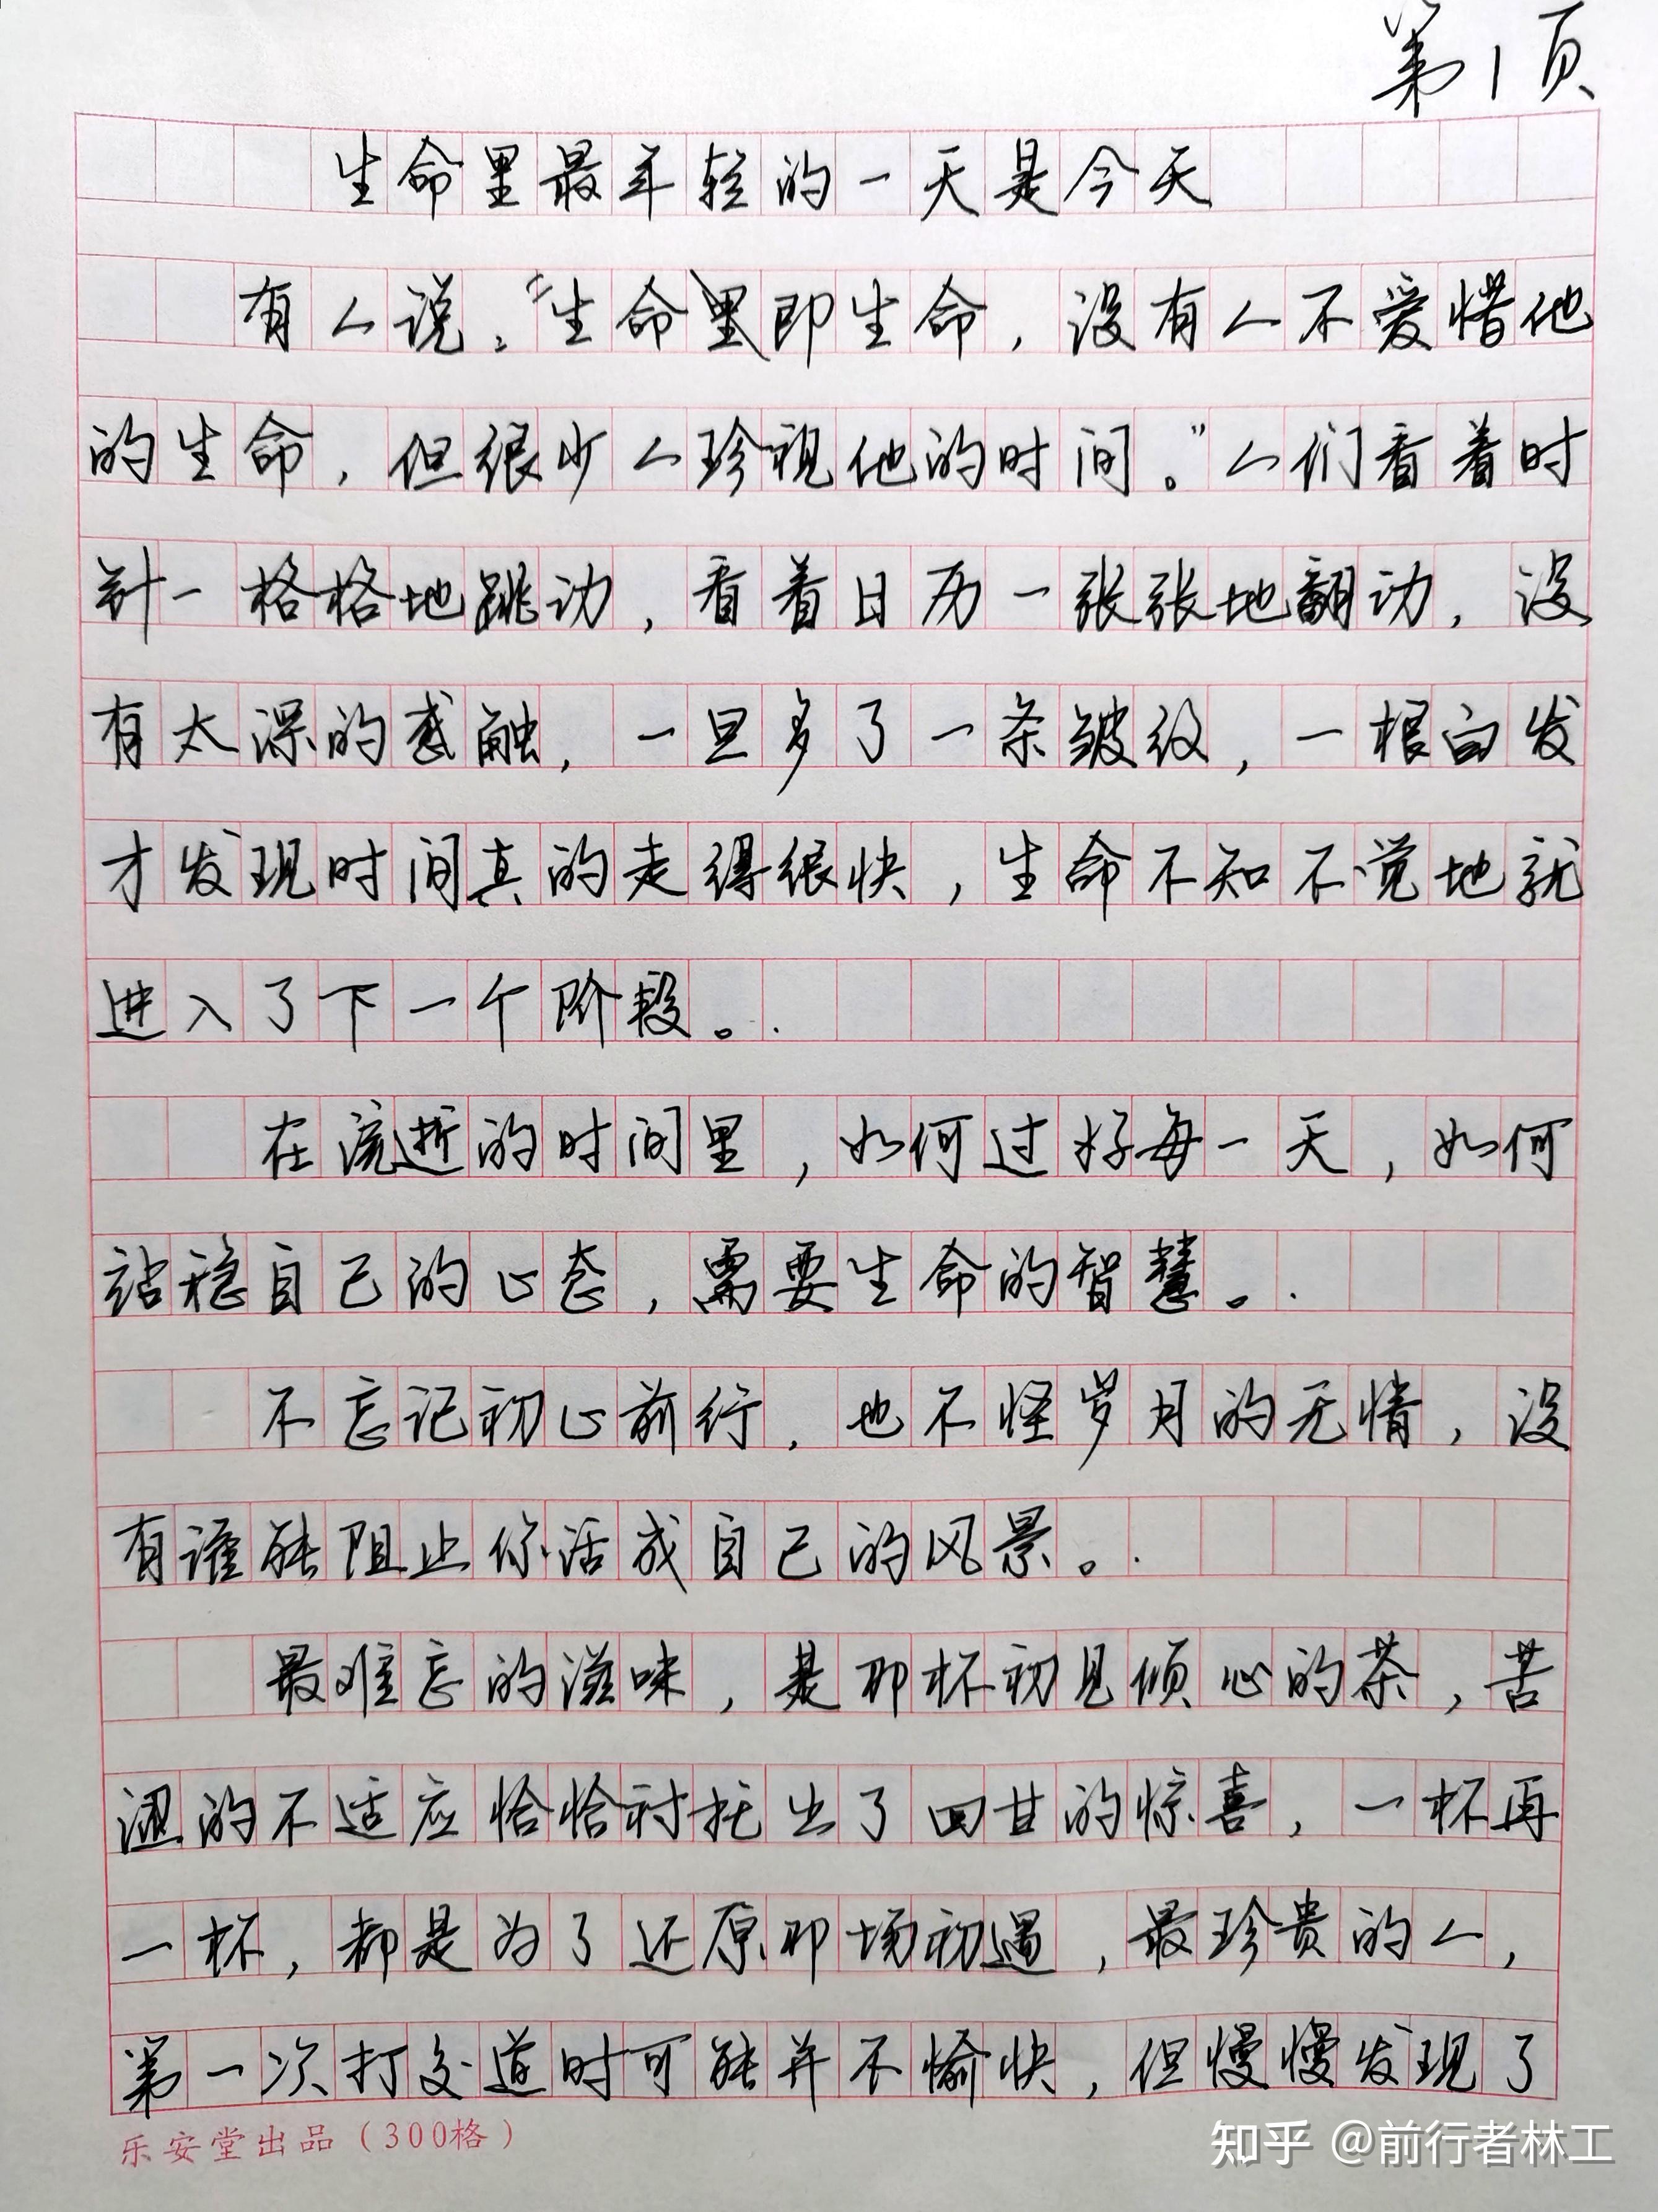 第1页
生命里最年轻的一天是今天
有人说："生命里即生命，没有人不爱惜他
的生命，但很少人珍视他的时间。"人们看着时
针一格格地跳动，看着日历一张张地翻动，没
有太深的感触，一旦多了一条皱纹，一根白发
才发现时间真的走得很快，生命不知不觉地就
进入了下一个阶段。
在流逝的时间里，如何过好每一天，如何
站稳自己的心态，需要生命的智慧。
不忘记初心前行，也不怪岁月的无情，没
有谁能阻止你活成自己的风景。
最难忘的滋味，是那杯初见倾心的茶，苦
涩的不适应恰恰衬托出了回甘的惊喜，一杯再
一杯，都是为了还原那场初遇，最珍贵的人，
第一次打交道时可能并不愉快，但慢慢发现了
乐安堂出品（300格）
知乎 @前行者林工